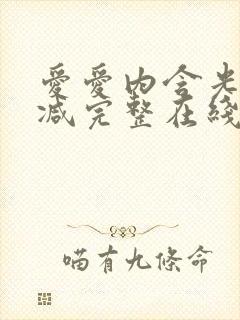 愛愛内含光
减完整在綫
喵有九條命